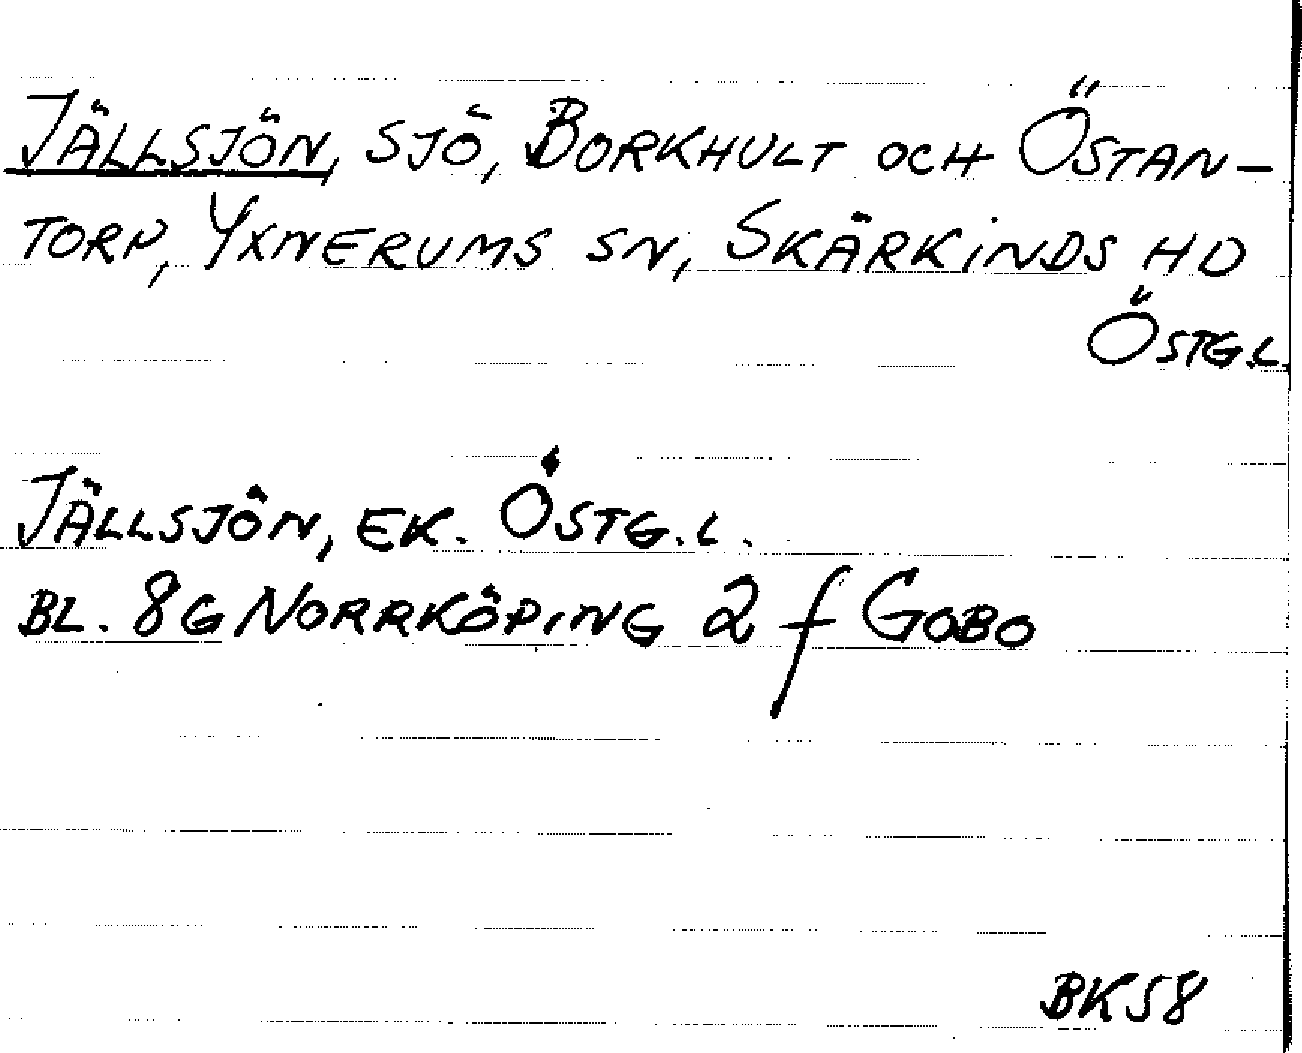 JÄLLSJÖN, SJÖ, BORKHULT OCH ÖSTAN-
TORP, YXNERUMS SN, SKÄRKINDS HD
ÖSTG.L.
JÄLLSJÖN, EK. ÖSTG.L.
BL. 8G NORRKÖPING 2 f GOBO
BK58